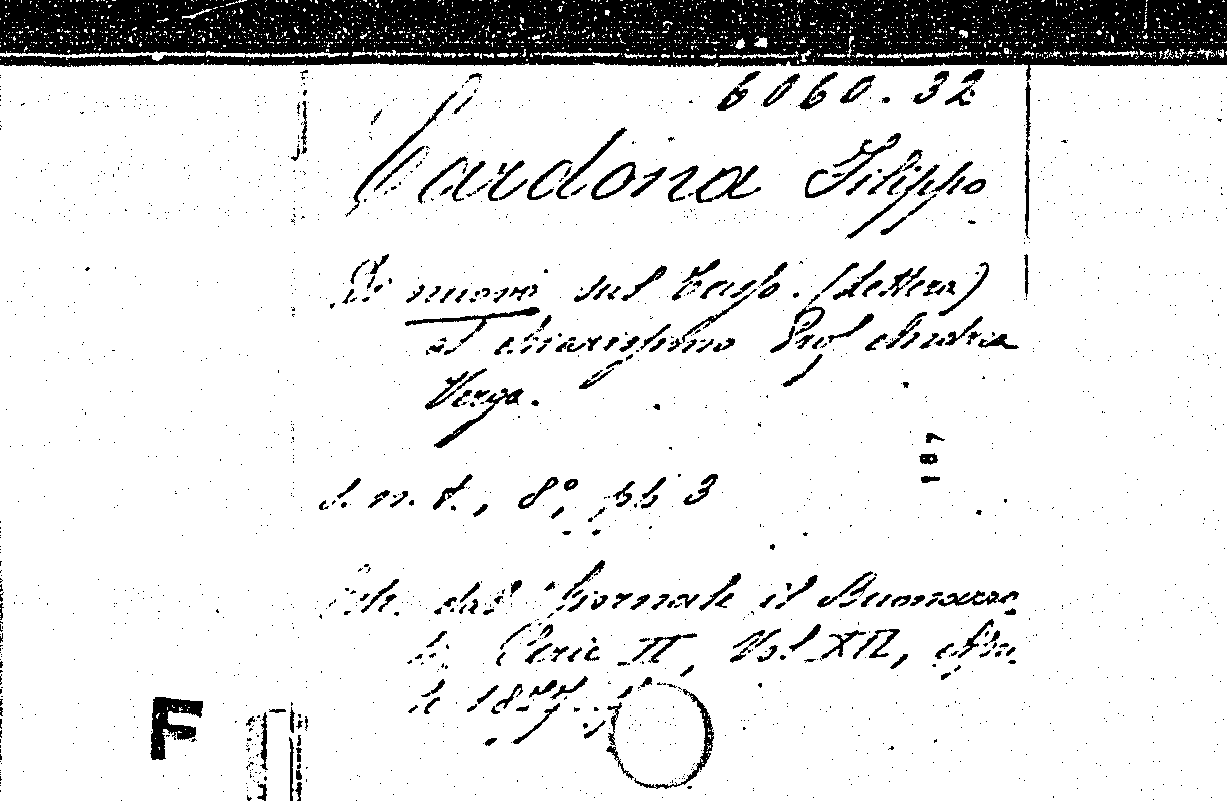 6060.32
Cardona Filippo
Di nuovo sul Tasso. (Lettera)
al chiarissimo Prof Andrea
Verga.
187
s. n. t., 8°, pp 3
Estr. dal Giornale il Buonarro
ti, Serie II, Vol XII, Apri
le 1877.
F